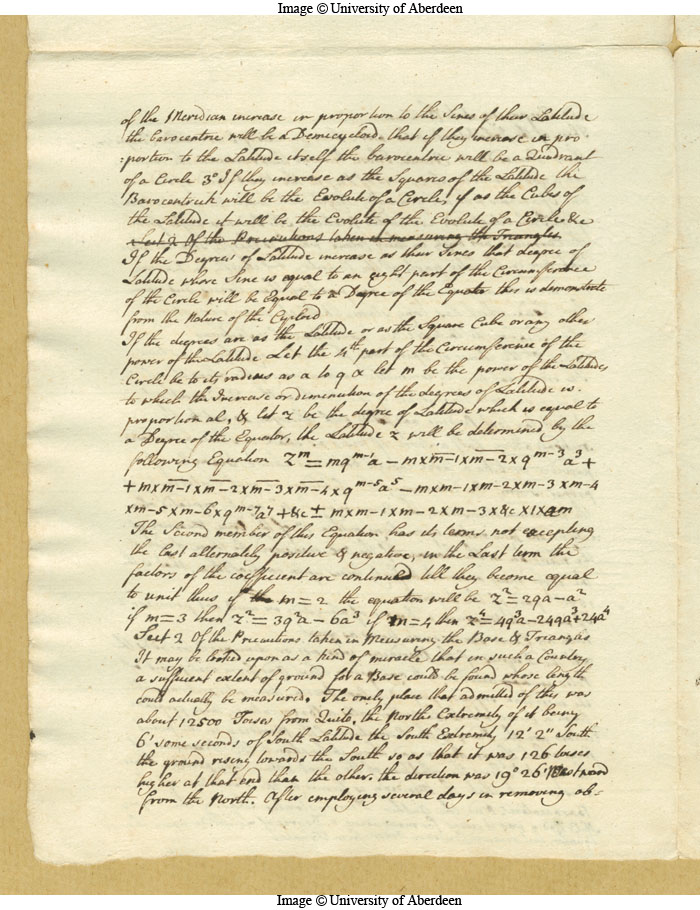 Image © University of Aberdeen
of the Meridian increase in proportion to the Sines of their Latitude
the barocentric will be a Demicycloid. that if they increase in pro
:portion to the Latitude itself the barocentric will be a Quadrant
of a Circle 3º If they increase as the Squares of the Latitude the
Barocentrick will be the Evolute of a Circle, if as the Cubes of
the Latitude it will be the Evolute of the Evolute of a Circle &c
Sect 2 Of the Precautions taken in measuring the Triangles.
If the Degrees of Latitude increase as their Sines that degree of
Latitude whose Sine is equal to an eight part of the Circumference
of the Circle will be Equal to a Degree of the Equator this is demonstrate
from the Nature of the Cycloid
If the degrees are as the Latitude or as the Square Cube or any other
power of the Latitude Let the 4th part of the Circumference of the
Circle be to its radius as a to q & let m be the power of the Latitudes
to which the Increase or diminution of the degrees of Latitude is
proportional, & let z be the degree of Latitude which is equal to
a Degree of the Equator, the Latitude z will be determined by the
following Equation z^m = mq^m-1 a − m×m−1×m−2×q^m-3 a^3 +
+ m×m−1×m−2×m−3×m−4×q^m-5 a^5 − m×m−1×m−2×m−3×m−4
×m−5×m−6×q^m-7 a^7 + &c ± m×m−1×m−2×m−3×&c×1×am
The Second member of this Equation has its terms not excepting
the last alternately positive & negative, in the Last term the
factors of the coefficient are continued till they become equal
to unit thus if m=2 the equation will be z^2=2qa−a^2
if m=3 then z^2=3q^2a−6a^3 if m=4 then z^4=4q^3a−24qa^3+24a^4
Sect 2 Of the Precautions taken in Measuring the Base & Triangles
It may be looked upon as a kind of miracle that in such a Country
a sufficient extent of ground for a Base could be found whose length
could actually be measured. The only place that admitted of this was
about 12500 Toises from Quito, the North Extremity of it being
6' some seconds of South Latitude the South Extremity 12' 2" South
the ground rising towards the South so as that it was 126 toises
higher at that end than the other. the direction was 19º 26' Eastward
from the North. After employing several days in removing ob-
Image © University of Aberdeen